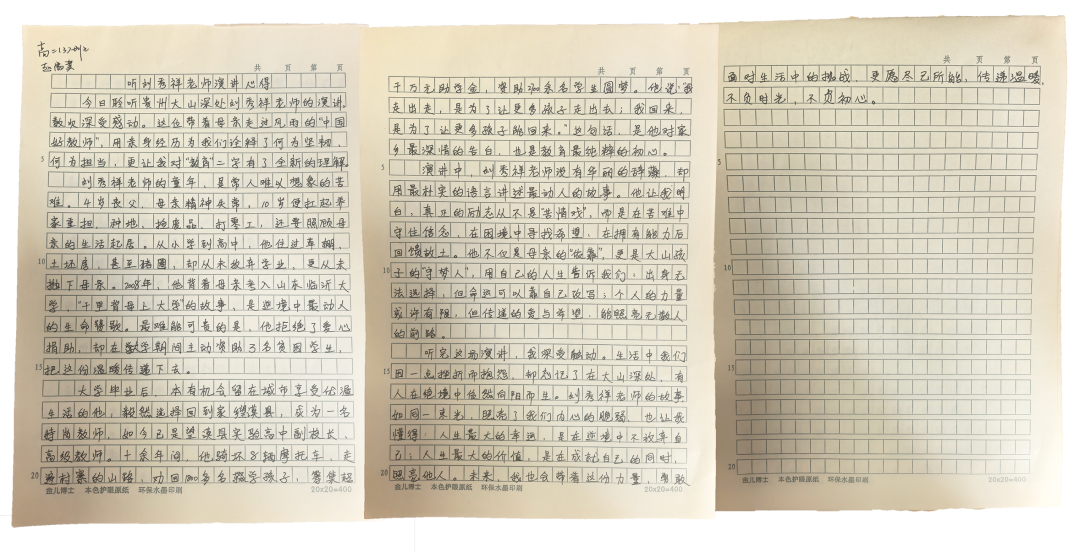 高二(3)
共 页 第 页
听刘秀祥老师演讲心得
今日聆听贵州大山深处刘秀祥老师的演讲,
数次深受感动。这位带着母亲走过风雨的“中国
好教师”,用亲身经历为我们诠释了何为坚韧、
何为担当,更让我对“教育”二字有了全新的理解。
刘秀祥老师的童年,是常人难以想象的苦
难。4岁丧父,母亲精神失常,10岁便扛起养
家重担,种地、捡废品、打零工,还要照顾母
亲的生活起居。从小学到高中,他住过车棚、
土坯房,甚至猪圈,却从未放弃学业,更从未
抛下母亲。2008年,他背着母亲考入山东临沂大
学,“千里背母上大学”的故事,是逆境中最动人
的生命赞歌。最难能可贵的是,他拒绝了爱心
捐助,却在数学期间主动资助了3名贫困学生,
把这份温暖传递下去。
大学毕业后,本有机会留在城市享受优渥
生活的他,毅然选择回到家乡望谟县,成为一名
特岗教师,如今已是望谟县实验高中副校长、
高级教师。十余年间,他骑坏8辆摩托车,走
遍村寨的山路,劝回1800多名辍学孩子,筹集超
5
10
15
20
金儿博士 本色护眼原纸 环保水墨印刷 20×20=400
共 页 第 页
千万元助学金,资助名学生圆梦。他说:“我
走出来,是为了让更多孩子走出去;我回来,
是为了让更多孩子能回来。”这句话,是他对家
乡最深情的告白,也是教育最纯粹的初心。
演讲中,刘秀祥老师没有华丽的辞藻,却
用最朴实的语言讲述最动人的故事。他让我明
白,真正的励志从不是“苦情戏”,而是在苦难中
守住信念,在困境中寻找希望,在拥有能力后
回馈故土。他不仅是母亲的“依靠”,更是大山孩
子的“守梦人”,用自己的人生告诉我们:出身无
法选择,但命运可以靠自己改写;个人的力量
或许有限,但传递的爱与希望,能照亮无数人
的前路。
听完这场演讲,我深受触动。生活中我们
因一点挫折而抱怨,却忘记了在大山深处,有
人在绝境中依然向阳而生。刘秀祥老师的故事
如同一束光,照亮了我们内心的脆弱,也让我
懂得:人生最大的幸运,是在逆境中不放弃自
己;人生最大的价值,是在成就自己的同时,
照亮他人。未来,我也会带着这份力量,勇敢
5
10
15
20
金儿博士 本色护眼原纸 环保水墨印刷 20×20=400
共 页 第 页
面对生活中的挑战,更愿尽己所能,传递温暖,
不负时光,不负初心。
5
10
15
20
金儿博士 本色护眼原纸 环保水墨印刷 20×20=400